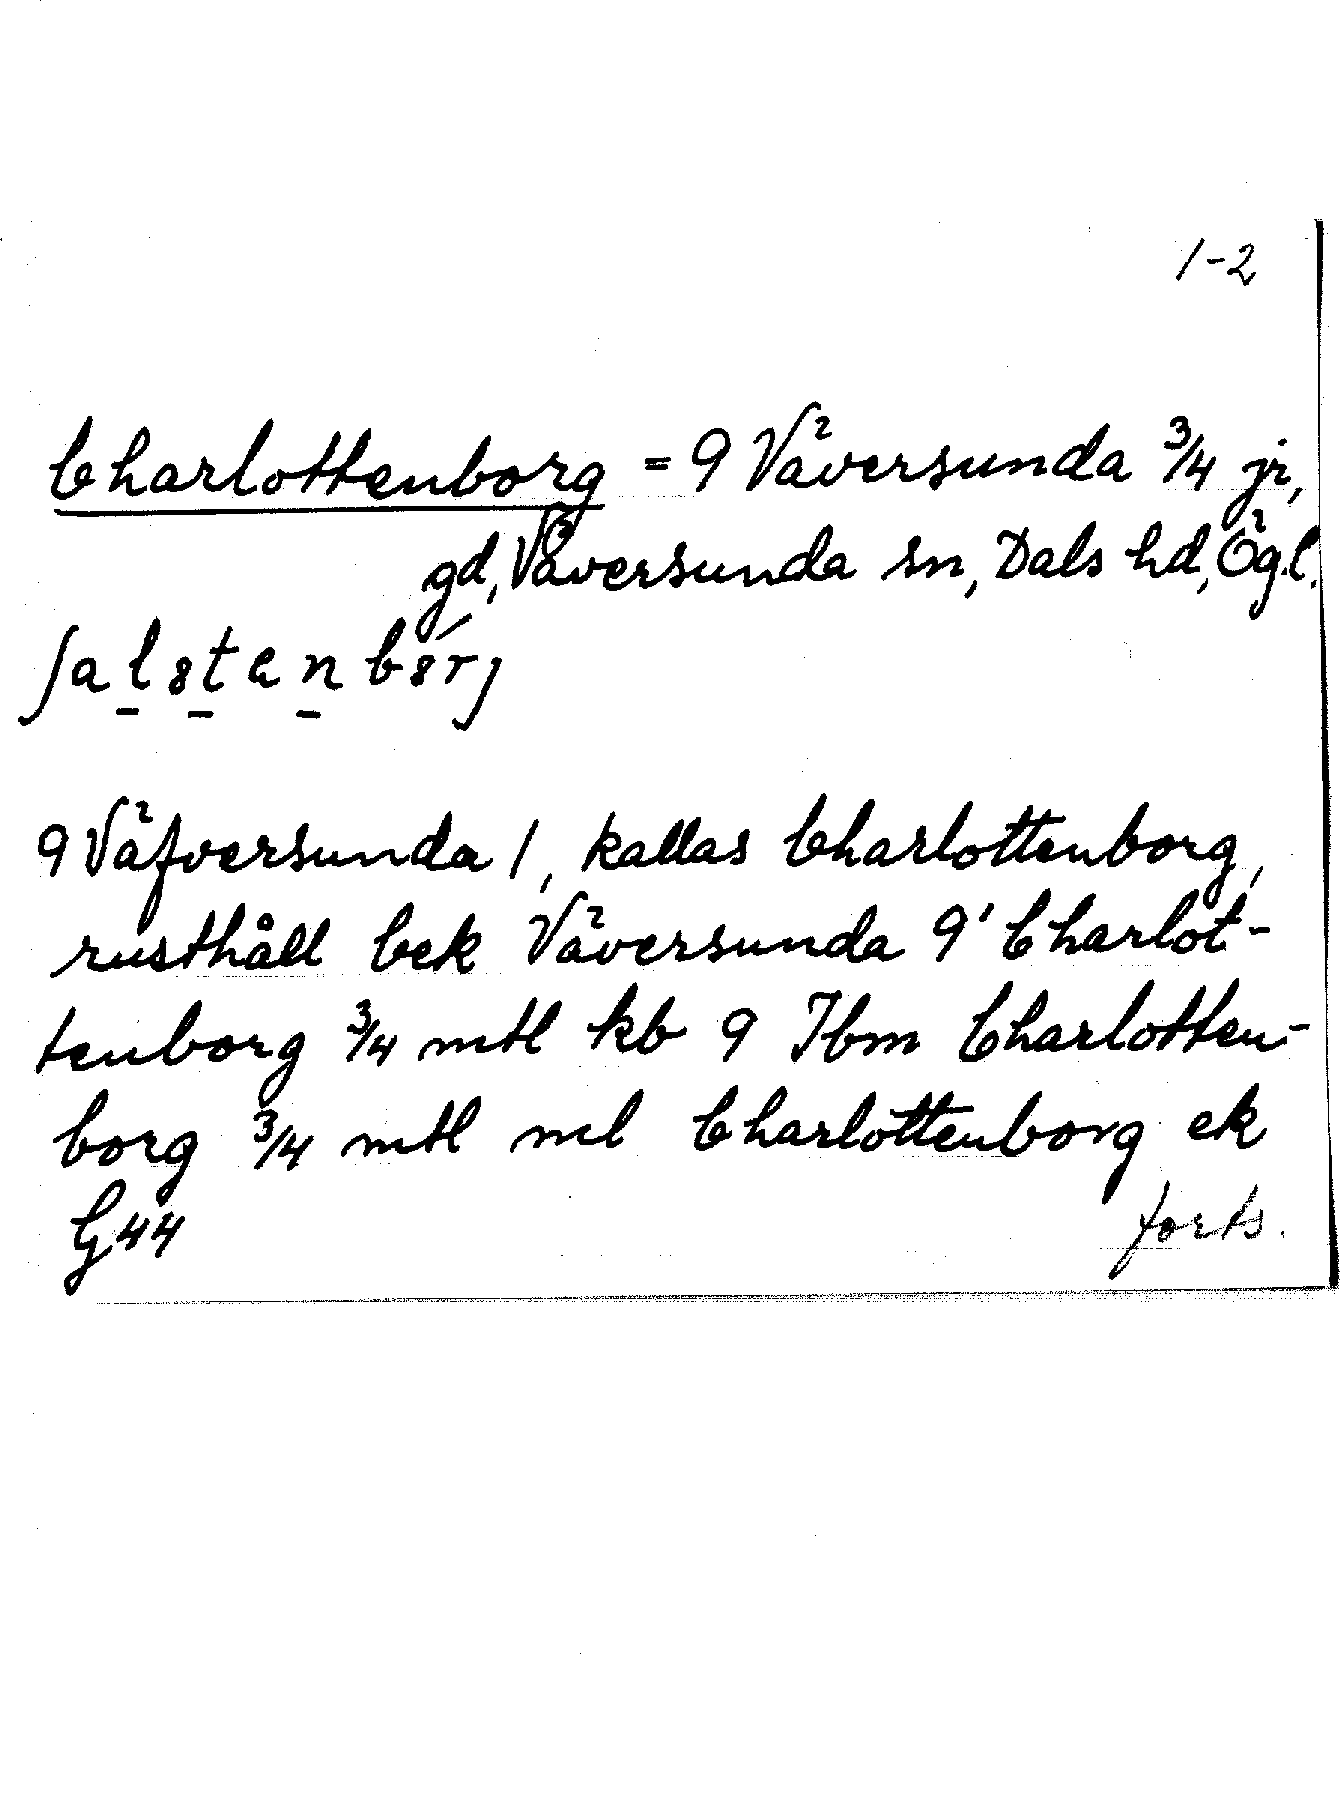 1-2
Charlottenborg = 9 Väversunda 3/4 jr,
gd, Väversunda sn, Dals hd, Ögl.
9 Väfversunda 1, kallas Charlottenborg,
rusthåll bek Väversunda 9' Charlot-
tenborg 3/4 mtl kb 9 Ibm Charlotten-
borg 3/4 mtl ml Charlottenborg ek
G44
forts.